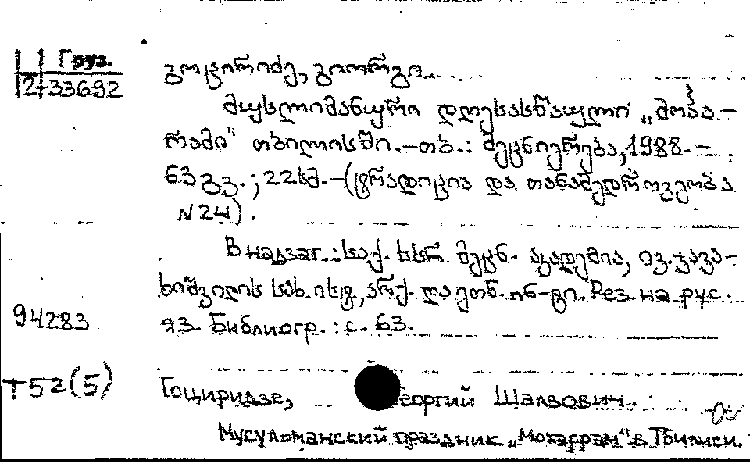 Груз.
2-33692
გოცირიძე, გიორგი.
მუსლიმანური დღესასწაული „მოჰა-
რამი" თბილისში.-თბ.: მეცნიერება, 1988.-
63 გვ.; 22სმ.-(ტრადიცია და თანამედროვეობა
N24).
В надзаг.: საქ. სსრ მეცნ. აკადემია, ივ. ჯავა-
ხიშვილის სახ. ისტ., არქ. და ეთნ. ინ-ტი. Рез. на рус.
94283
яз. Библиогр.: с. 63.
Т52(5)
Гоциридзе, Георгий Шалвович.
Мусульманский праздник „Мохаррам" в Тбилиси.